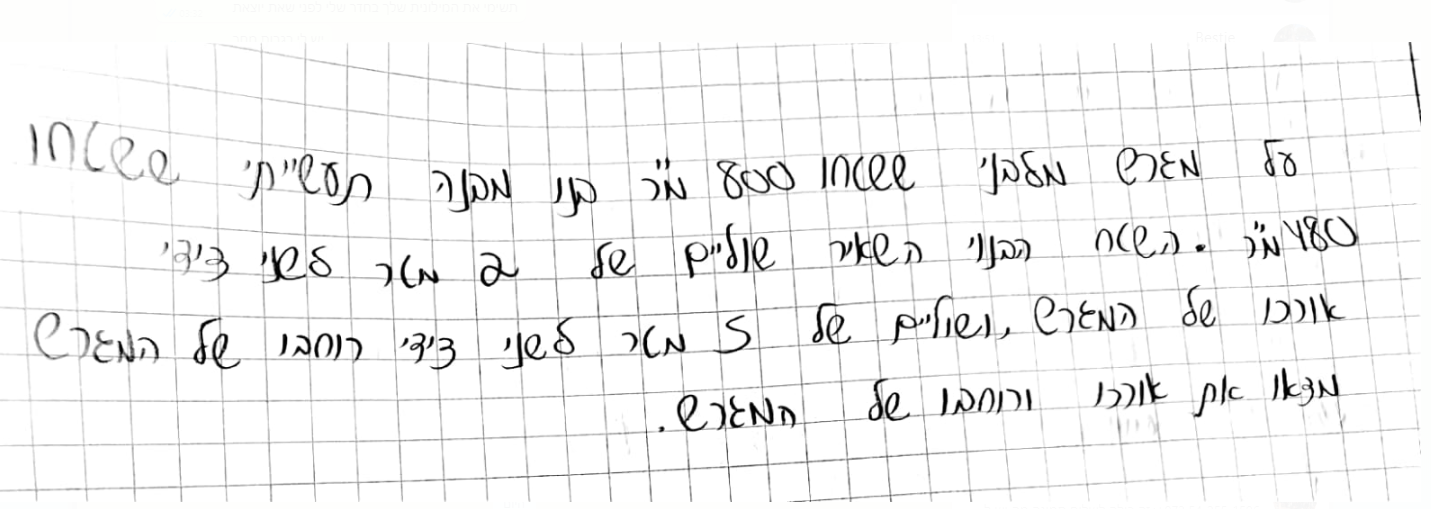 על מגרש מלבני ששטחו 800 מ"ר בנוי מבנה תעשייתי ששטחו
480 מ"ר. השטח הבנוי השאיר שוליים של 2 מטר לשני צידי
אורכו של המגרש, ושוליים של 5 מטר לשני צידי רוחבו של המגרש
מצאו את אורכו ורוחבו של המגרש.